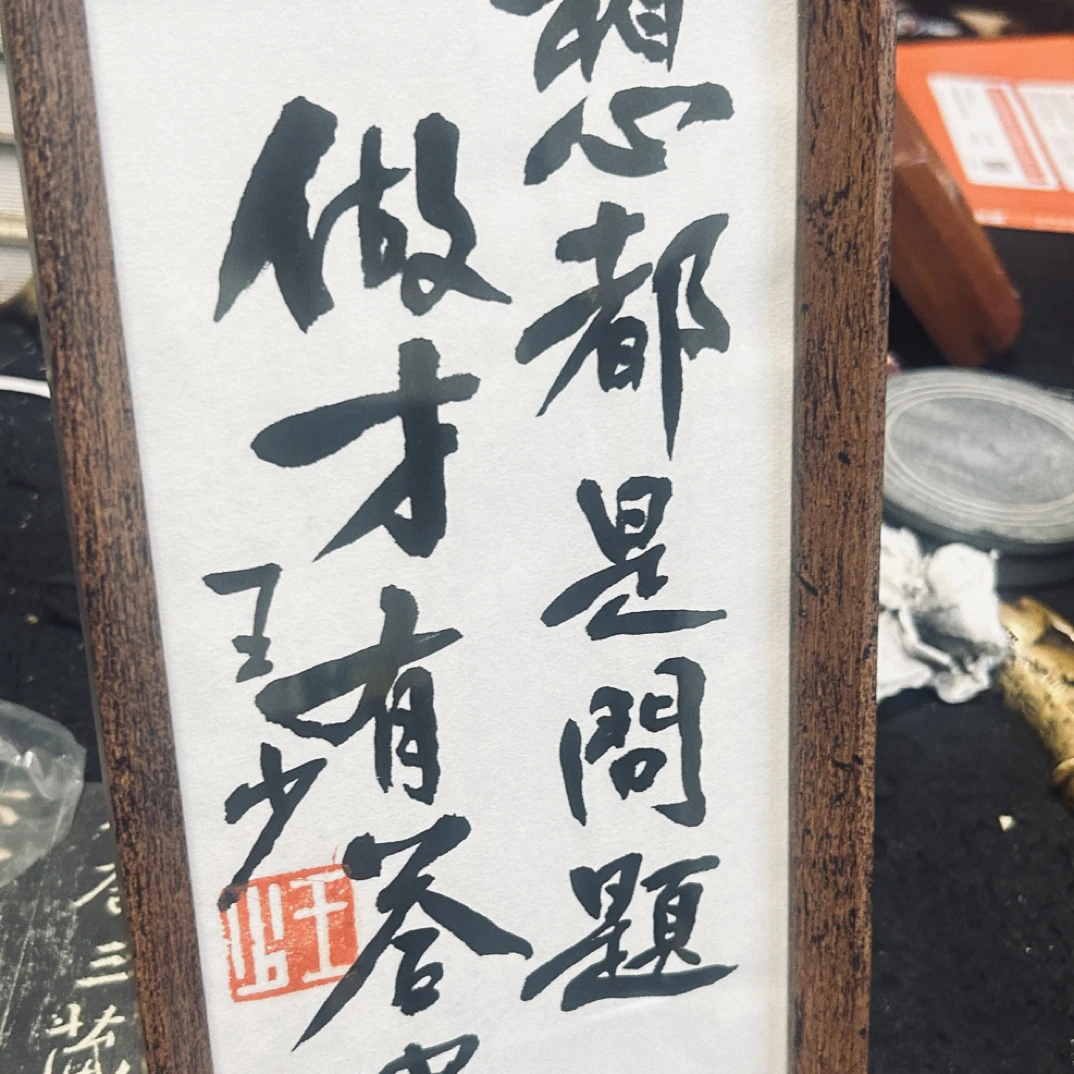 想都是問題
做才有答
王少